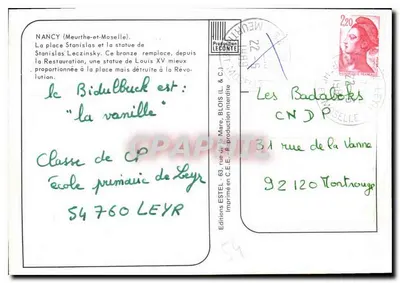 NANCY (Meurthe-et-Moselle).
La place Stanislas et la statue de
Stanislas Leczinsky. Ce bronze remplace, depuis
la Restauration, une statue de Louis XV mieux
proportionnée à la place mais détruite à la Révo-
lution.
le Bidulbuck est :
"la vanille"
Classe de CP
École primaire de Leyr
54 760 LEYR
Production
LECONTE
Editions ESTEL - 63, rue Mare, BLOIS (L. & C.)
Imprimé en C.E.E. - Reproduction interdite
2,20
MOSELLE
Les Badaboks
CNDP
31 rue de la Vanne
92120 Montrouge
54